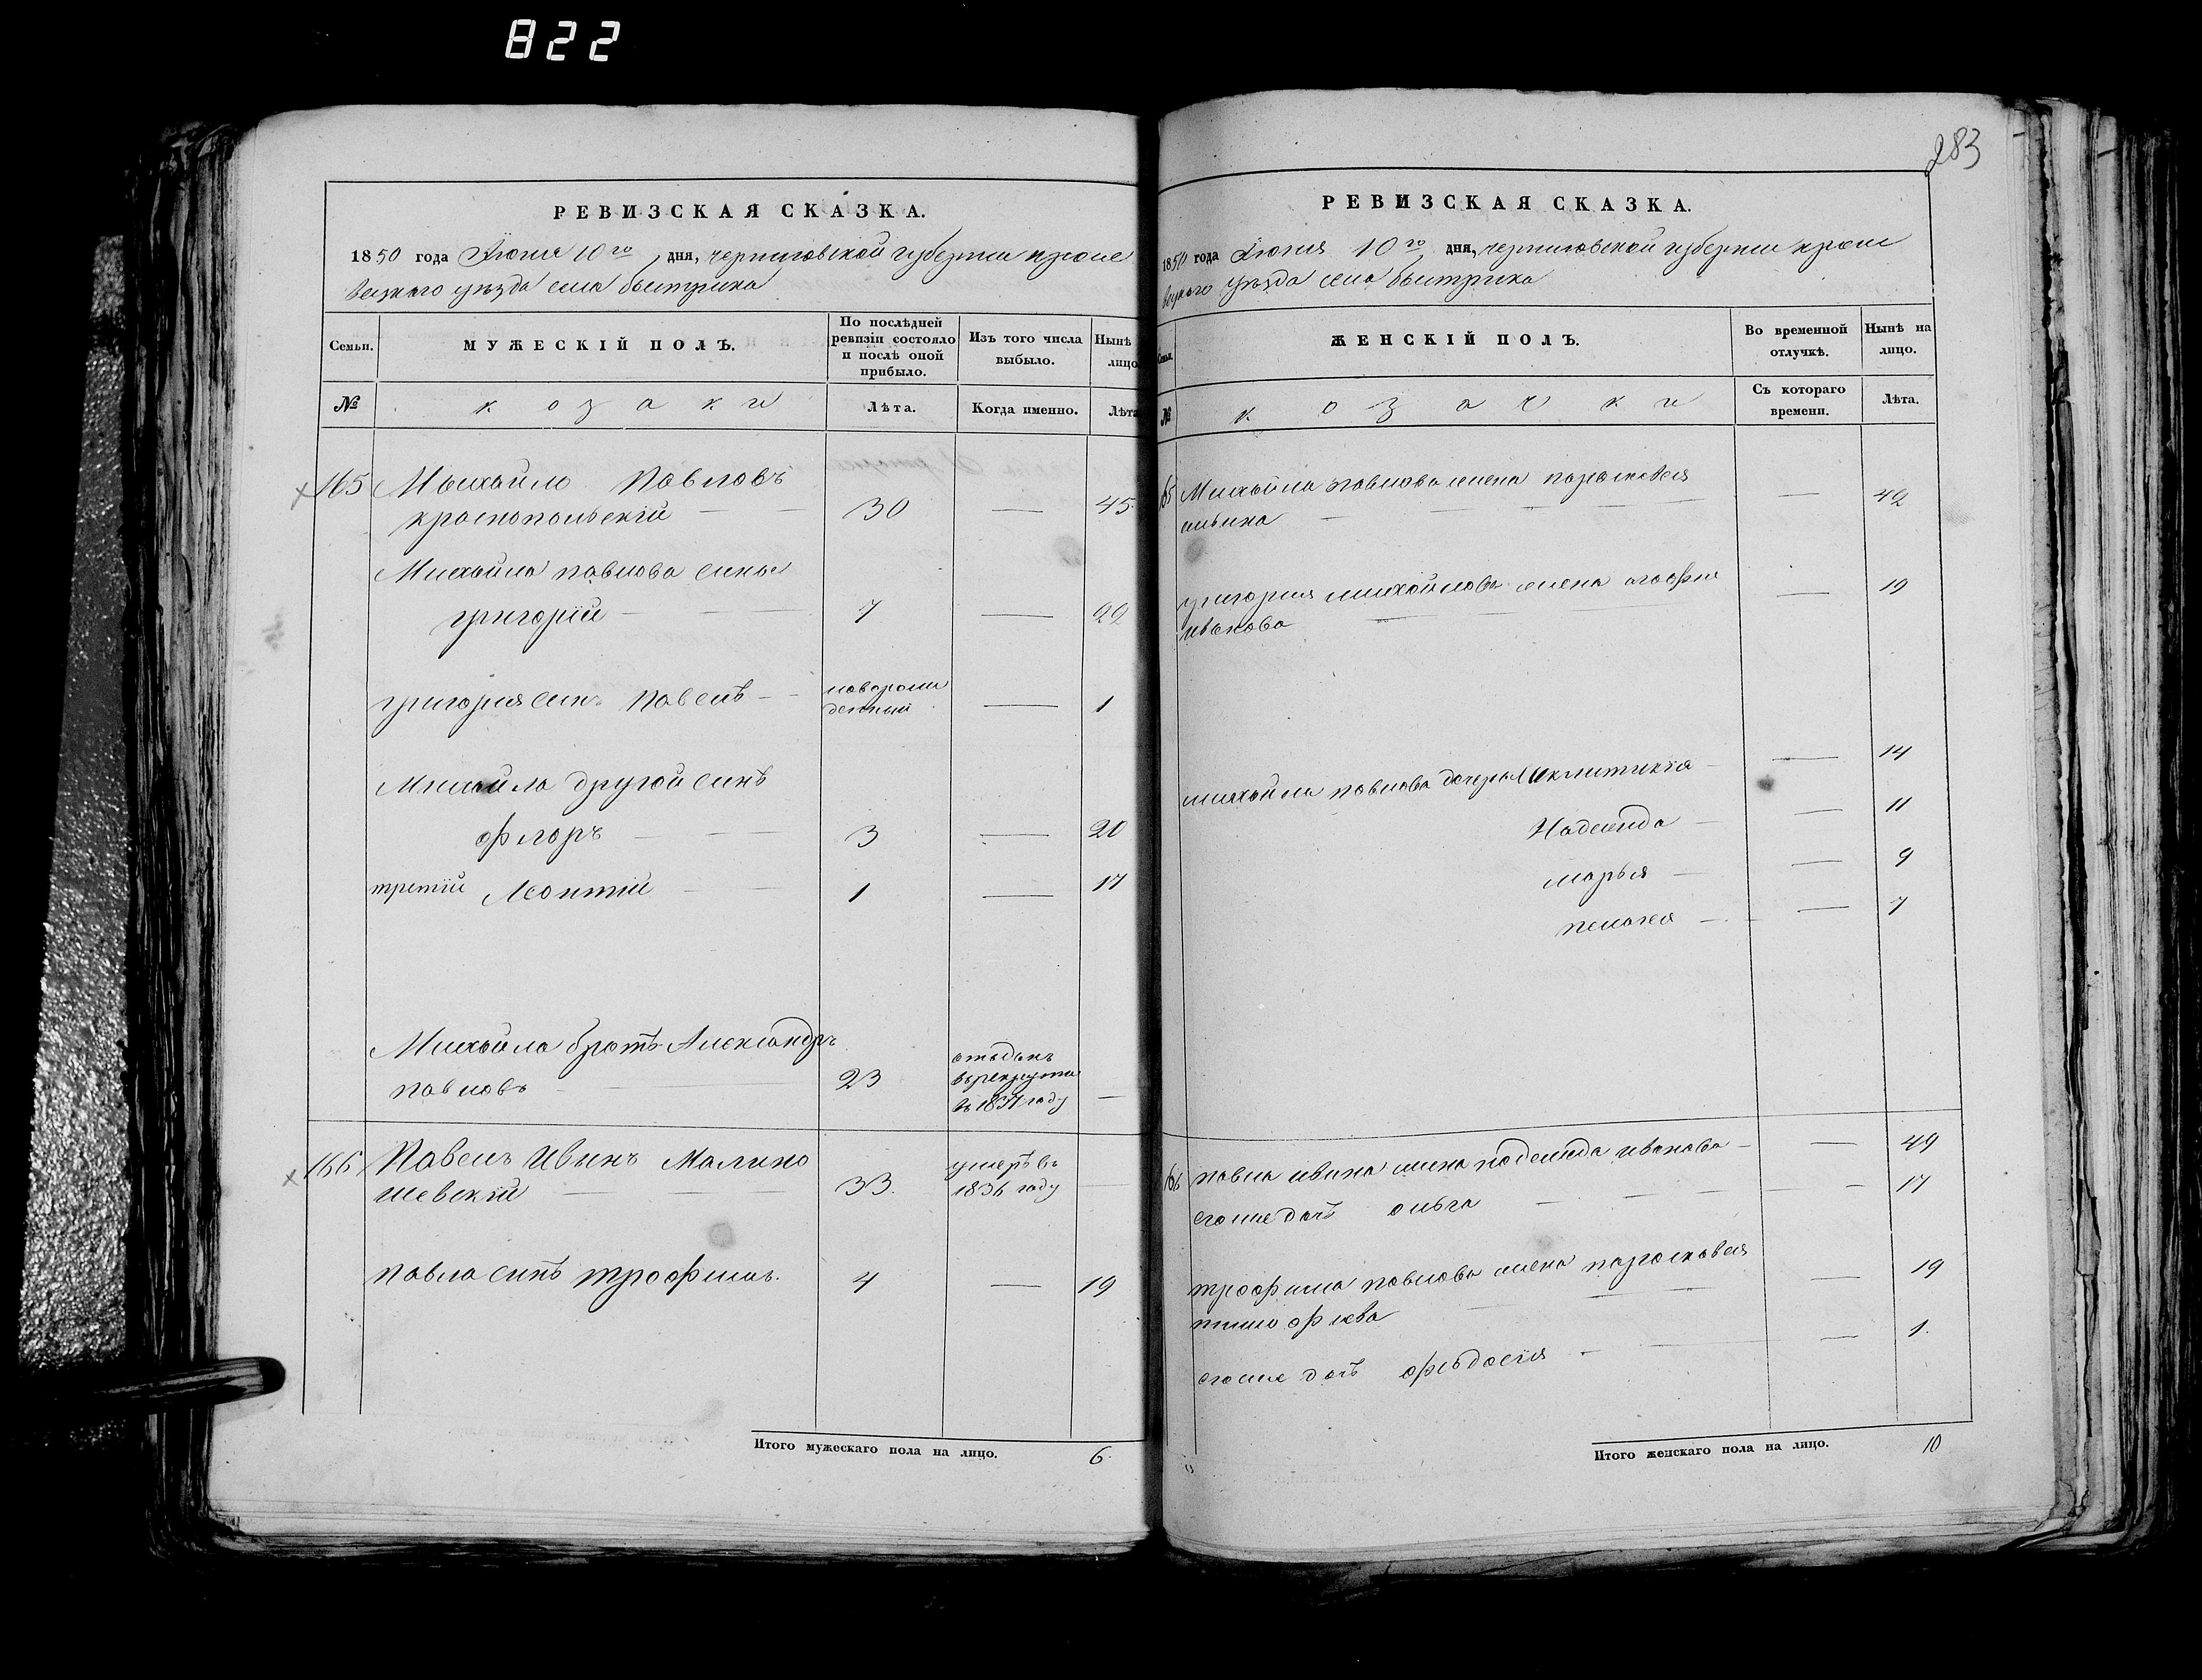 822
283
РЕВИЗСКАЯ СКАЗКА.
1850 года Июня 10го дня, черниговской губернии кроле
вецкаго уъзда села быстрика
Семьи. МУЖЕСКІЙ ПОЛЪ. По послѣдней ревизіи состояло и послѣ оной прибыло. Изъ того числа выбыло. Нынѣ лицо
№ козаки Лѣта. Когда именно. Лѣта
165 Михайло Павловъ
краснопольскій 30 — 45
Михайла павлова сины
григорій 7 — 22
григория синъ павелъ новорож
денный — 1
Михайла другой синъ
флоръ 3 — 20
третій Леонтій 1 — 17
Михайла братъ Александръ
павловъ 23 отъданъ
въ рекруты
въ 1837 году —
166 Павелъ Ивинъ Малино
шевскій 33. умеръ въ
1836 году —
павла синъ трофимъ. 4 — 19
Итого мужескаго пола на лицо. 6
РЕВИЗСКАЯ СКАЗКА.
1850 года Июня 10го дня, черниговской губернии кроле
вецкаго уъзда села быстрика
Семьи. ЖЕНСКІЙ ПОЛЪ. Во временной отлучкѣ. Нынѣ на лицо.
№ козачки Съ котораго времени. Лѣта.
165 Михайла павлова жена парасковея — 42
григория михайлова жена агафия — 19
иванова
михайла павлова дочери Синклитикія — 14
Надежда — 11
марья — 9
пелагея — 7
166 павла ивина жена надежда иванова — 49
егоже дочъ ольга — 17
трофима павлова жена парасковея — 19
тимофиева
егоже дочъ феодосія — 1.
Итого женскаго пола на лицо. 10